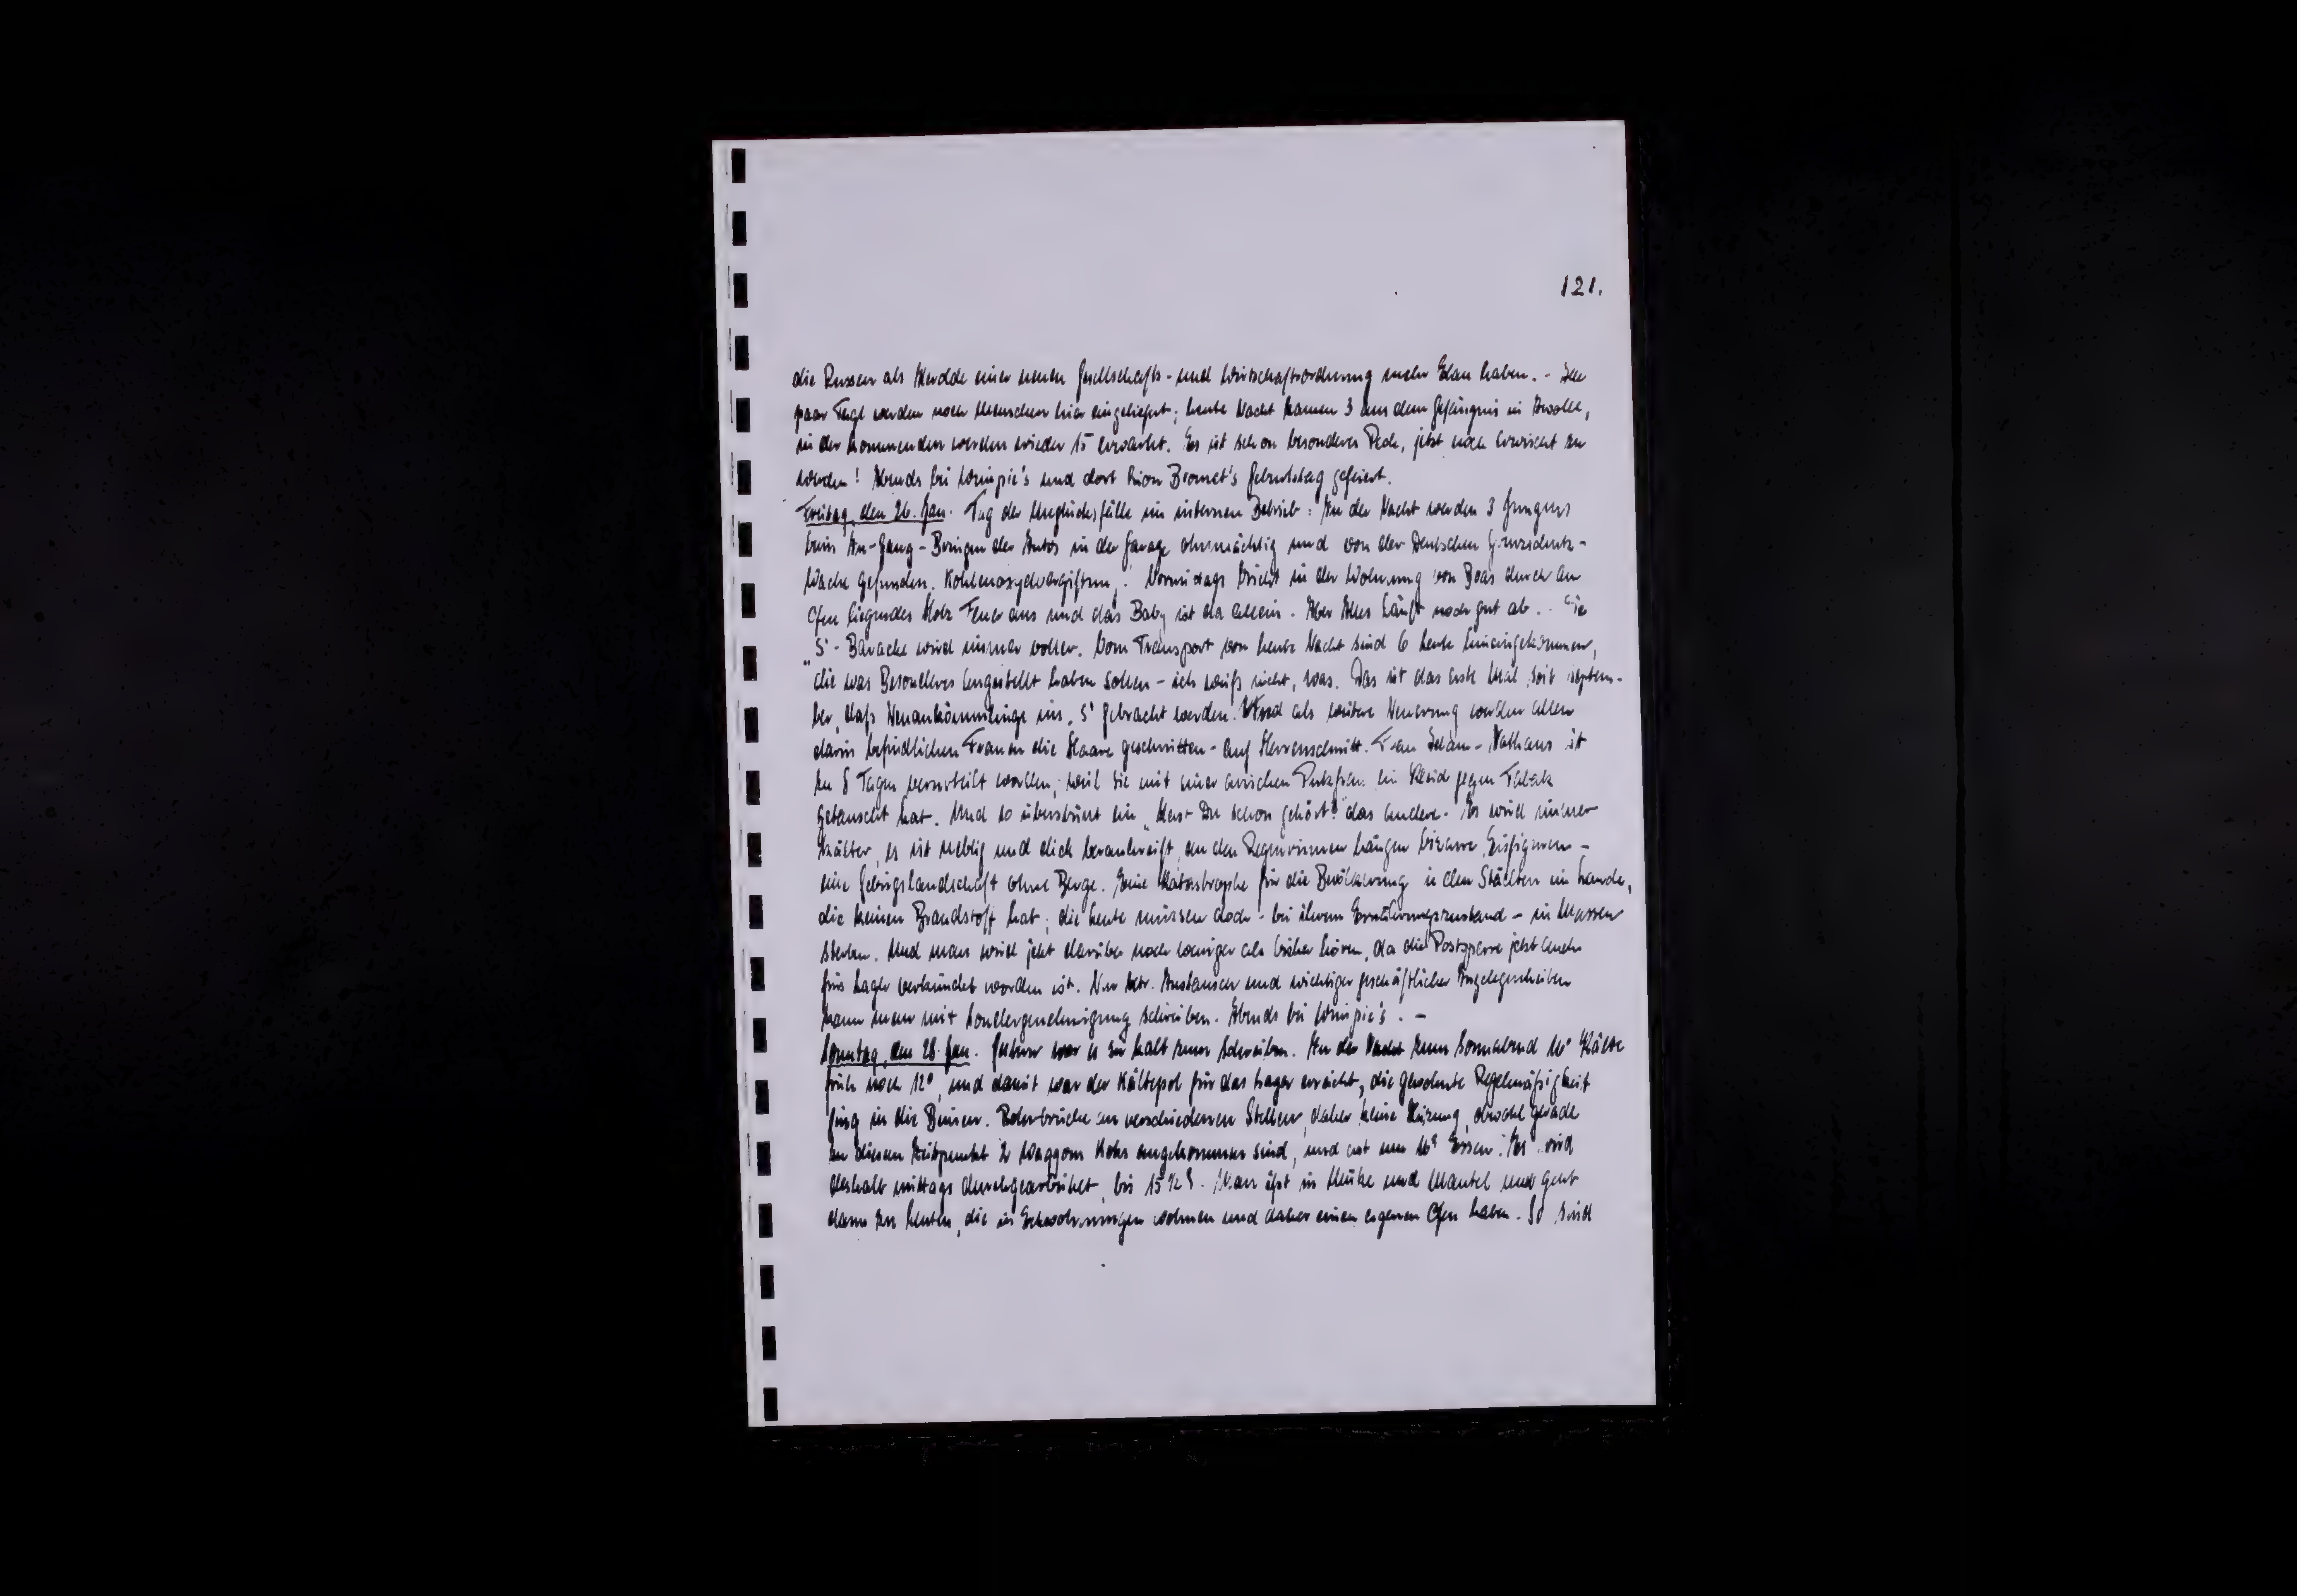 121.
die Russen als Herolde einer neuen Gesellschafts- und Wirtschaftsordnung mehr Elan haben. - Alle
paar Tage werden noch Menschen hier eingeliefert; heute Nacht kamen 3 aus dem Gefängnis in Zwolle,
in der kommenden werden wieder 15 erwartet. Es ist schon besonderes Pech, jetzt noch erwischt zu
werden! Abends bei Wimpie's und dort Geburtstag gefeiert.
Freitag, den 26. Jan. Tag der Unglücksfälle im internen Betrieb: In der Nacht werden 3 Jungens
beim In-Gang-Bringen der Autos in der Garage ohnmächtig und von der Deutschen Grenzschutz-
Wache gefunden. Kohlenoxydvergiftung. Vormittags bricht in der Wohnung von Boas durch am
Ofen liegendes Holz Feuer aus und das Baby ist da allein. Aber Alles läuft noch gut ab. - Die
"S"-Baracke wird immer voller. Vom Transport von heute Nacht sind 6 Leute hineingekommen,
die was Besonderes angestellt haben sollen - ich weiß nicht, was. Das ist das erste Mal seit Septem-
ber, daß Neuankömmlinge ins "S" gebracht werden. Und als weitere Neuerung werden allen
darin befindlichen Frauen die Haare geschnitten - auf Herrenschnitt. Frau ist
zu 8 Tagen verurteilt worden, weil sie mit einer arischen Putzfrau ein Kleid gegen Tabak
getauscht hat. Und so überstürzt ein "Hast Du schon gehört?" das andere. - Es wird immer
kälter, es ist neblig und dick beraubreift, an den Regenrinnen hängen bizarre Eisfiguren -
eine Gebirgslandschaft ohne Berge. Eine Katastrophe für die Bevölkerung in den Städten im Lande,
die keinen Brandstoff hat; die Leute müssen doch - bei ihrem Ernährungszustand - in Massen
sterben. Und man wird jetzt darüber noch weniger als bisher hören, da die Postsperre jetzt auch
fürs Lager verkündet worden ist. Nur betr. Austausch und wichtiger geschäftlicher Angelegenheiten
kann man mit Sondergenehmigung schreiben. Abends bei Wimpie's. -
Sonntag, den 28. Jan. Gestern war es zu kalt zum Schreiben. In der Nacht zum Sonnabend 16° Kälte
früh noch 12°, und damit war der Kältepol für das Lager erreicht, die gewohnte Regelmäßigkeit
ging in die Binsen. Rohrbrüche an verschiedenen Stellen, daher keine Heizung, obwohl gerade
zu diesem Zeitpunkt 2 Waggons Koks angekommen sind, und erst um Essen. Es wird
deshalb mittags durchgearbeitet, bis 15 1/2. Man ißt in Mütze und Mantel und geht
dann zu Leuten, die in Wohnungen wohnen und daher einen eigenen Ofen haben. So sind